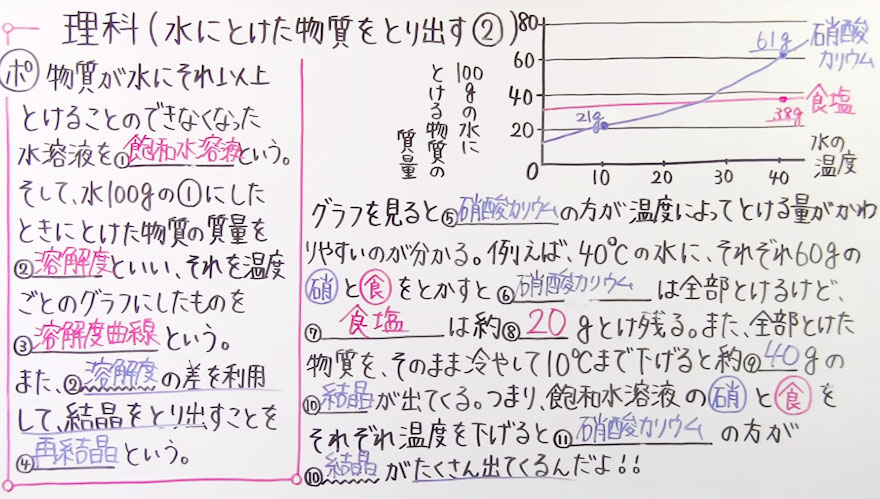 理科(水にとけた物質をとり出す②)
ポ 物質が水にそれ以上
とけることのできなくなった
水溶液を①飽和水溶液という。
そして、水100gの①にした
ときにとけた物質の質量を
②溶解度といい、それを温度
ごとのグラフにしたものを
③溶解度曲線という。
また、②溶解度の差を利用
して、結晶をとり出すことを
④再結晶という。
100gの水に
とける物質の
質量
80
60
40
20
0
10 20 30 40
水の
温度
61g
硝酸
カリウム
食塩
38g
21g
グラフを見ると⑤硝酸カリウムの方が温度によってとける量がかわ
りやすいのが分かる。例えば、40℃の水に、それぞれ60gの
硝と食をとかすと⑥硝酸カリウムは全部とけるけど、
⑦食塩は約⑧20gとけ残る。また、全部とけた
物質を、そのまま冷やして10℃まで下げると約⑨40gの
⑩結晶が出てくる。つまり、飽和水溶液の硝と食を
それぞれ温度を下げると⑪硝酸カリウムの方が
⑩結晶がたくさん出てくるんだよ!!